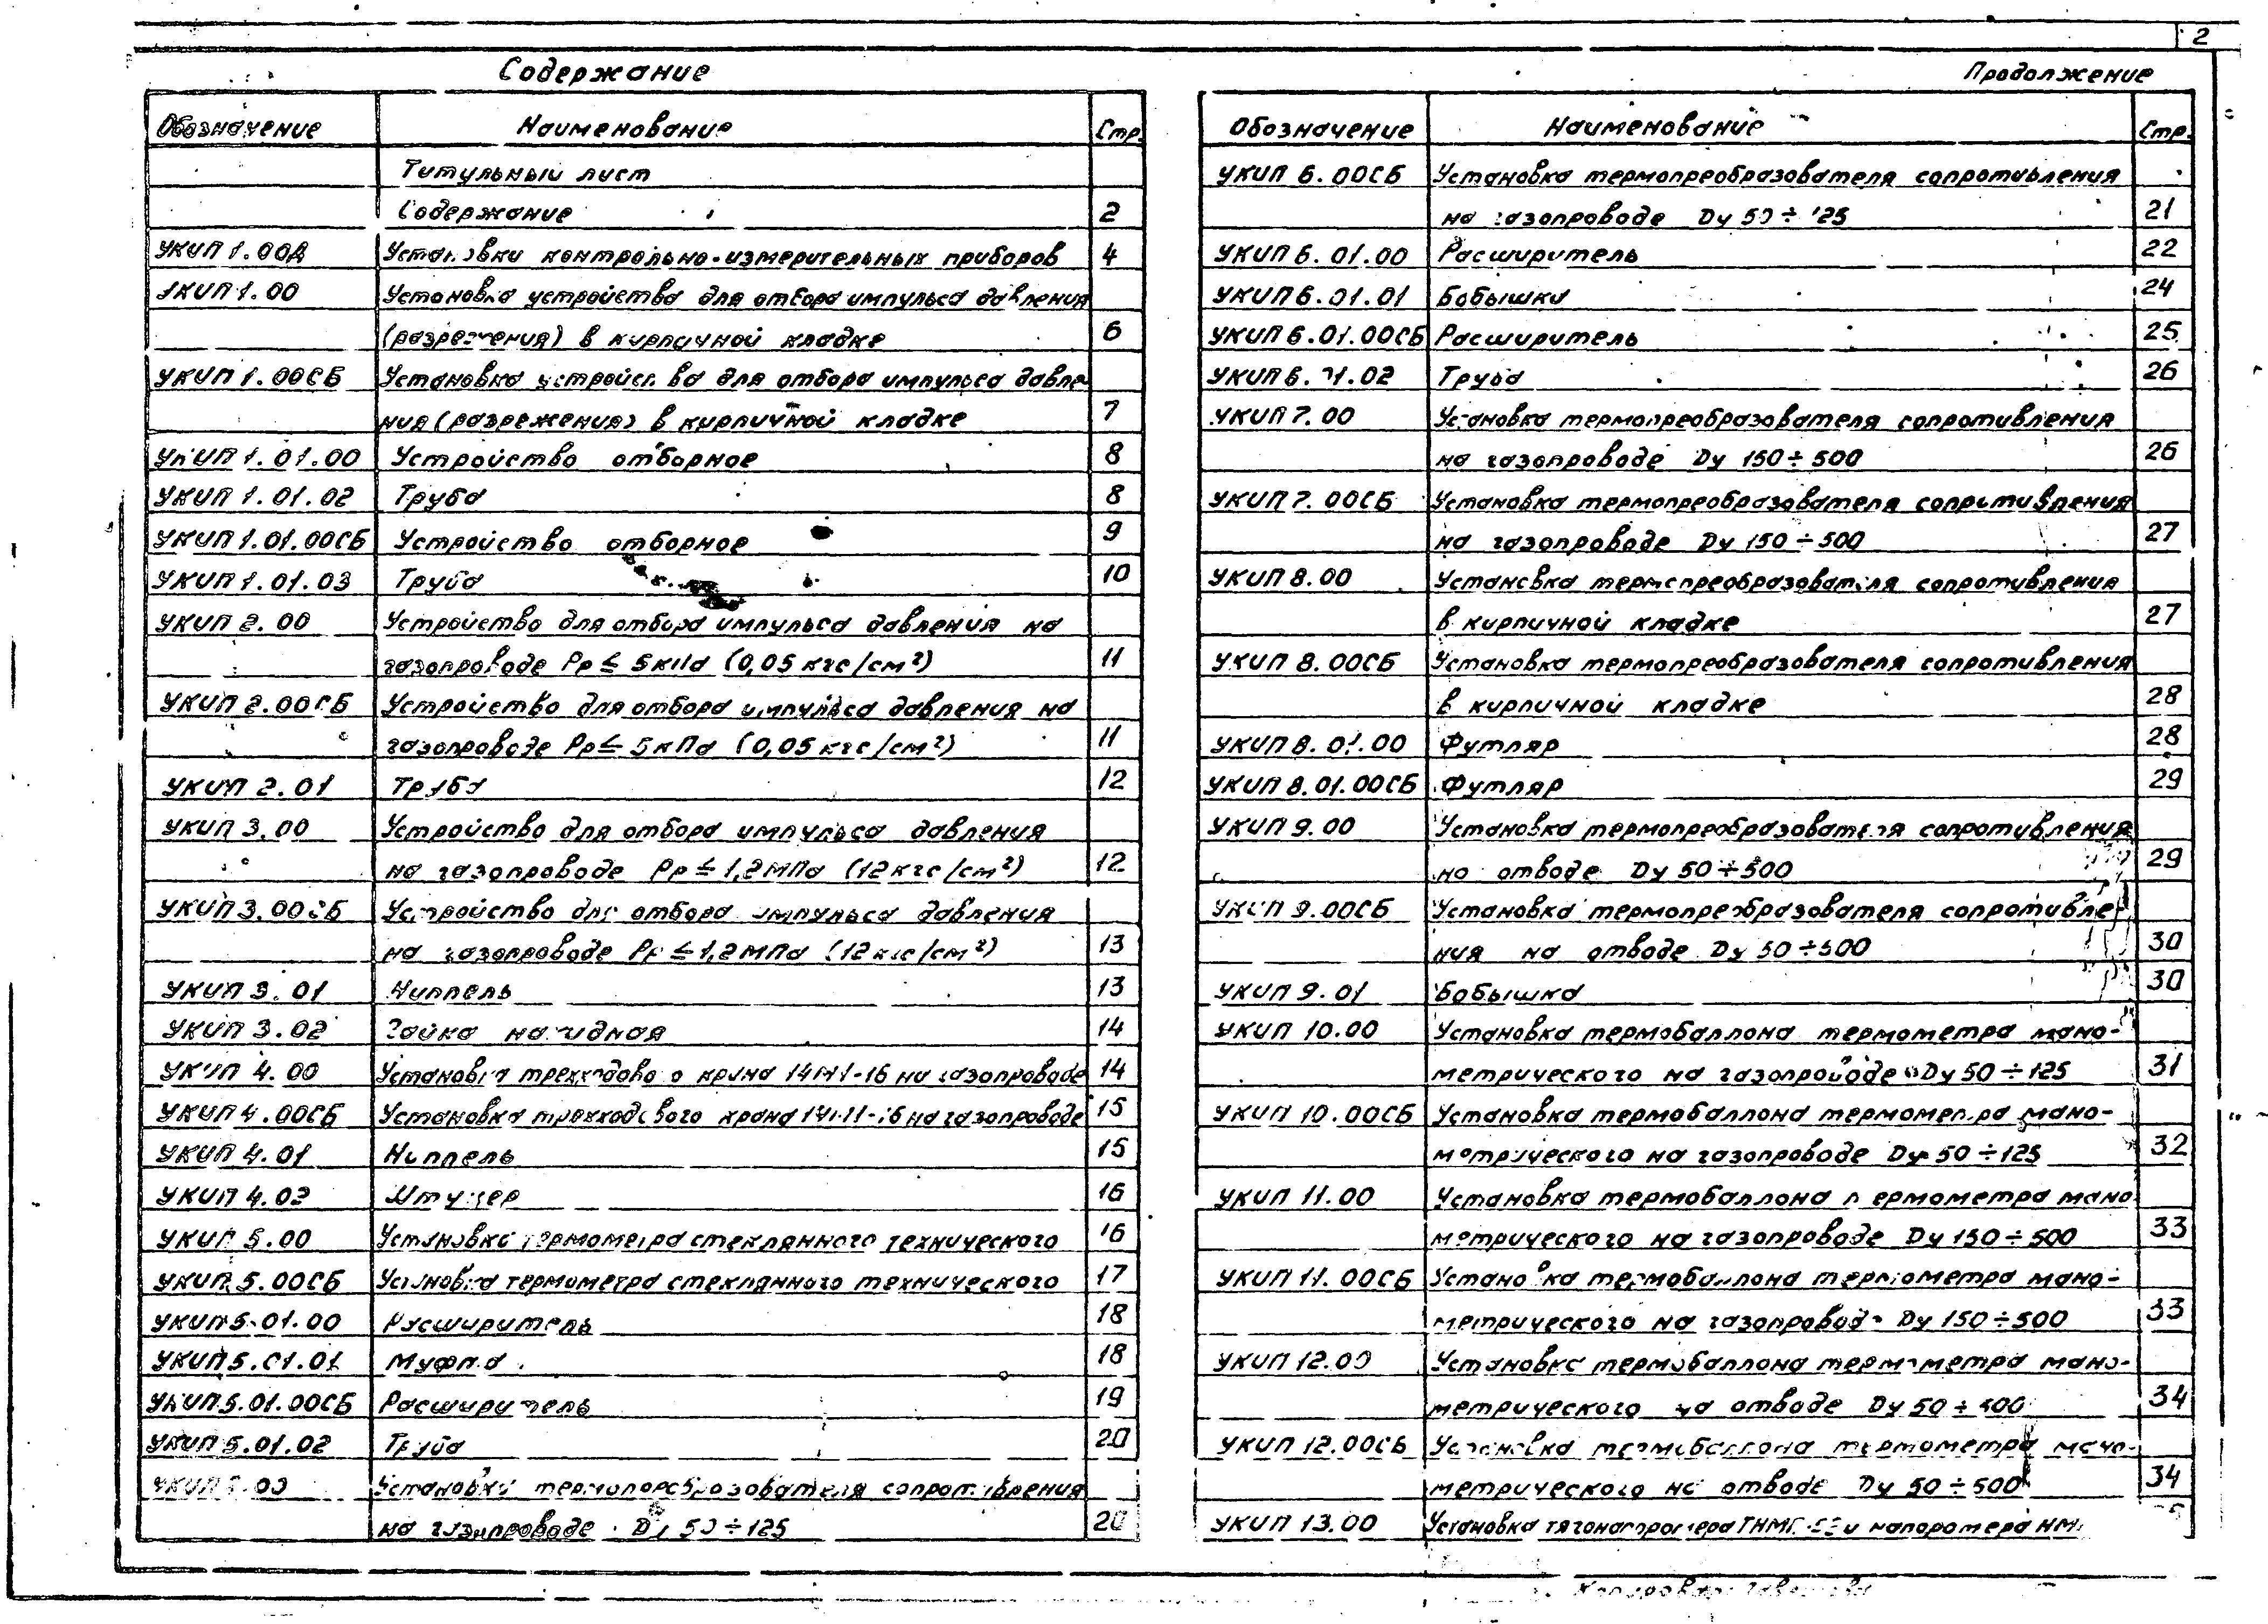 2
Содержание
Обозначение Наименование Стр.
Титульный лист
Содержание 2
УКИП 1.00Д Установки контрольно-измерительных приборов 4
УКИП 1.00 Установка устройства для отбора импульса давления
(разрежения) в кирпичной кладке 6
УКИП 1.00СБ Установка устройства для отбора импульса давле-
ния (разрежения) в кирпичной кладке 7
УКИП 1.01.00 Устройство отборное 8
УКИП 1.01.02 Труба 8
УКИП 1.01.00СБ Устройство отборное 9
УКИП 1.01.03 Труба 10
УКИП 2.00 Устройство для отбора импульса давления на
газопроводе Рр ≤ 5кПа (0,05 кгс/см²) 11
УКИП 2.00СБ Устройство для отбора импульса давления на
газопроводе Рр ≤ 5кПа (0,05 кгс/см²) 11
УКИП 2.01 Труба 12
УКИП 3.00 Устройство для отбора импульса давления
на газопроводе Рр ≤ 1,2МПа (12кгс/см²) 12
УКИП 3.00СБ Устройство для отбора импульса давления
на газопроводе Рр ≤ 1,2МПа (12кгс/см²) 13
УКИП 3.01 Ниппель 13
УКИП 3.02 Гайка накидная 14
УКИП 4.00 Установка трехходового крана 14М1-16 на газопроводе 14
УКИП 4.00СБ Установка трехходового крана на газопроводе 15
УКИП 4.01 Ниппель 15
УКИП 4.02 Штуцер 16
УКИП 5.00 Установка термометра стеклянного технического 16
УКИП 5.00СБ Установка термометра стеклянного технического 17
УКИП 5.01.00 Расширитель 18
УКИП 5.01.01 Муфта 18
УКИП 5.01.00СБ Расширитель 19
УКИП 5.01.02 Труба 20
УКИП Установка термопреобразователя сопротивления
на газопроводе Dу 50÷125 20
Продолжение
Обозначение Наименование Стр.
УКИП 6.00СБ Установка термопреобразователя сопротивления
на газопроводе Dу 50÷125 21
УКИП 6.01.00 Расширитель 22
УКИП 6.01.01 Бобышка 24
УКИП 6.01.00СБ Расширитель 25
УКИП 6.01.02 Труба 26
УКИП 7.00 Установка термопреобразователя сопротивления
на газопроводе Dу 150÷500 26
УКИП 7.00СБ Установка термопреобразователя сопротивления
на газопроводе Dу 150÷500 27
УКИП 8.00 Установка термопреобразователя сопротивления
в кирпичной кладке 27
УКИП 8.00СБ Установка термопреобразователя сопротивления
в кирпичной кладке 28
УКИП 8.01.00 Футляр 28
УКИП 8.01.00СБ Футляр 29
УКИП 9.00 Установка термопреобразователя сопротивления
на отводе Dу 50÷500 29
УКИП 9.00СБ Установка термопреобразователя сопротивле-
ния на отводе Dу 50÷500 30
УКИП 9.01 Бобышка 30
УКИП 10.00 Установка термобаллона термометра мано-
метрического на газопроводе Dу 50÷125 31
УКИП 10.00СБ Установка термобаллона термометра мано-
метрического на газопроводе Dу 50÷125 32
УКИП 11.00 Установка термобаллона термометра мано
метрического на газопроводе Dу 150÷500 33
УКИП 11.00СБ Установка термобаллона термометра мано-
метрического на газопроводе Dу 150÷500 33
УКИП 12.00 Установка термобаллона термометра мано-
метрического на отводе Dу 50÷500 34
УКИП 12.00СБ Установка термобаллона термометра мано-
метрического на отводе Dу 50÷500 34
УКИП 13.00 Установка тягонапоромера и напоромера
Копировал